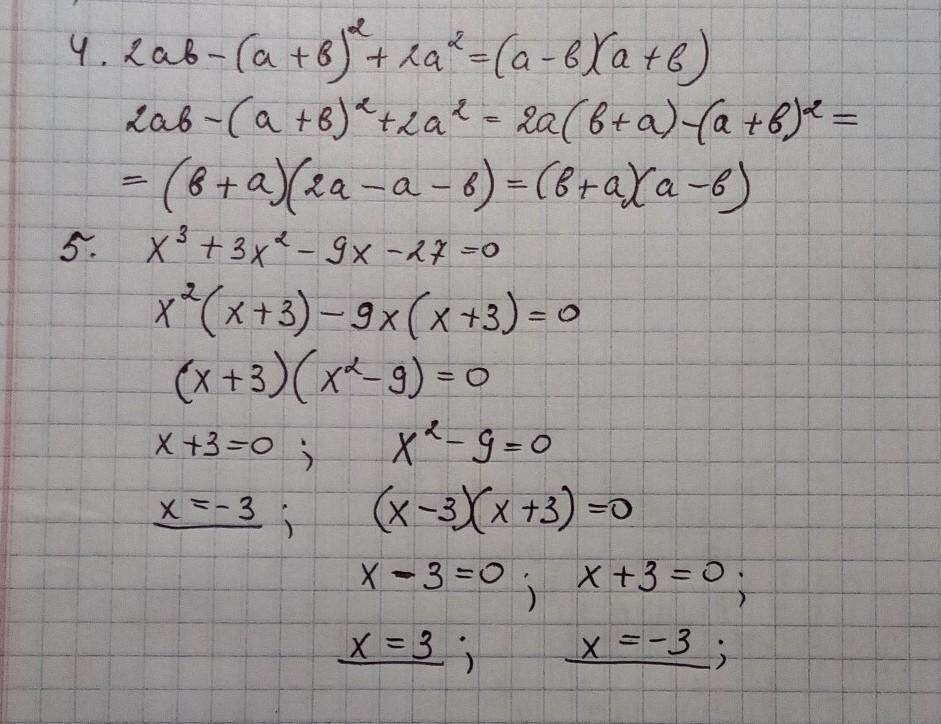 4. 2ab - (a + b)² + 2a² = (a - b)(a + b)
2ab - (a + b)² + 2a² = 2a(b + a) - (a + b)² =
= (b + a)(2a - a - b) = (b + a)(a - b)
5. x³ + 3x² - 9x - 27 = 0
x²(x + 3) - 9x(x + 3) = 0
(x + 3)(x² - 9) = 0
x + 3 = 0 ; x² - 9 = 0
x = -3 ; (x - 3)(x + 3) = 0
x - 3 = 0 ; x + 3 = 0 ;
x = 3 ; x = -3 ;